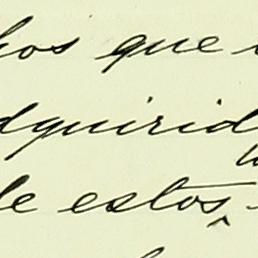 hos que
dquirid
de estos